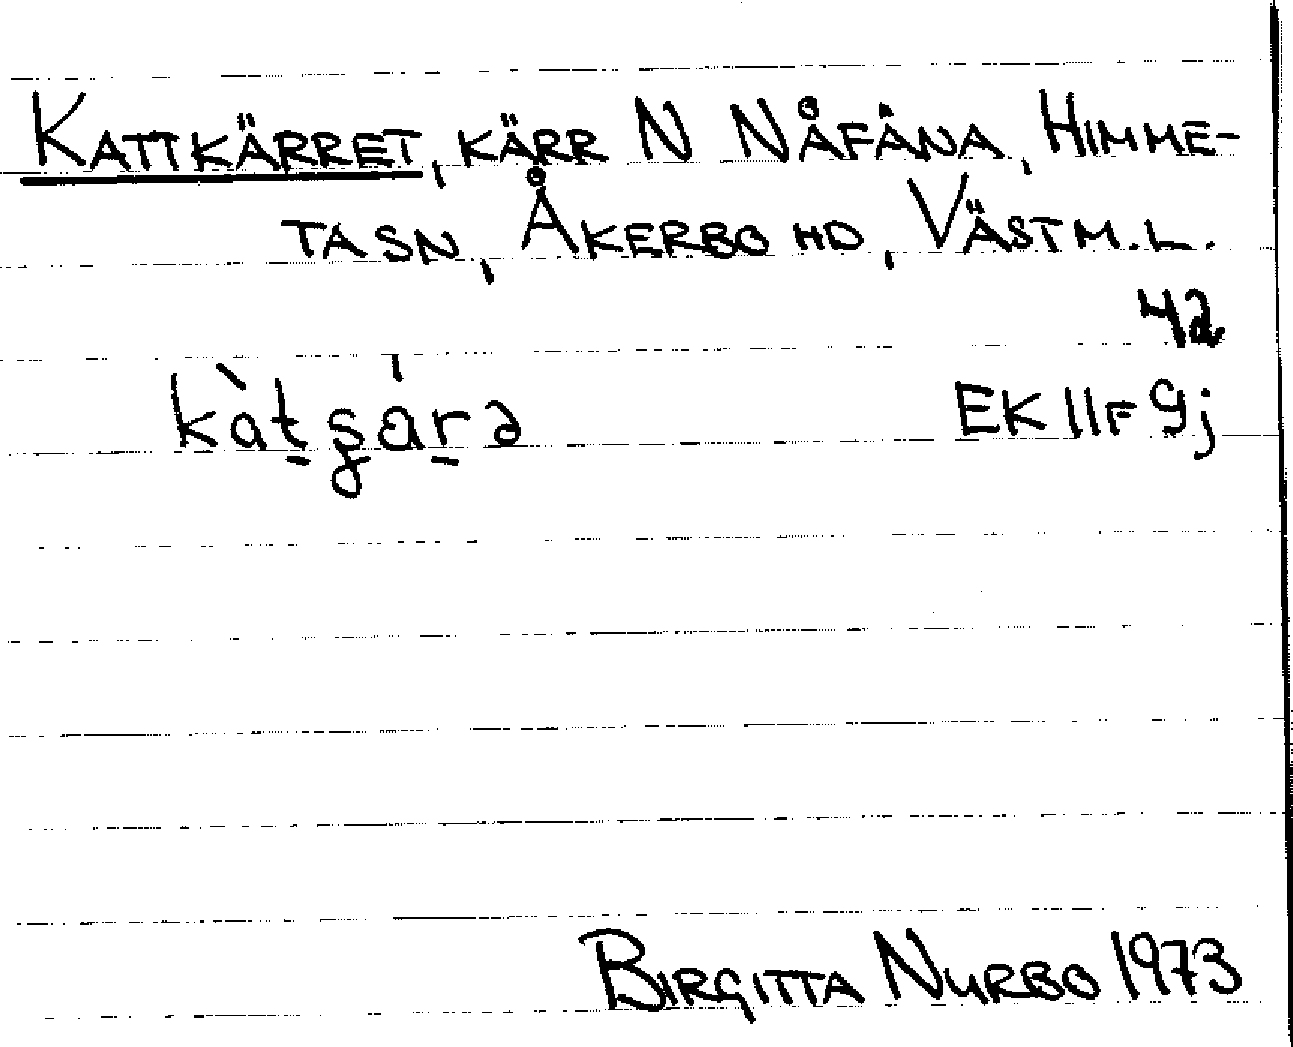 KATTKÄRRET, KÄRR N NÅFÅNA, HIMME-
TA SN, ÅKERBO HD, VÄSTM.L.
42
EK 11F 9j
BIRGITTA NURBO 1973